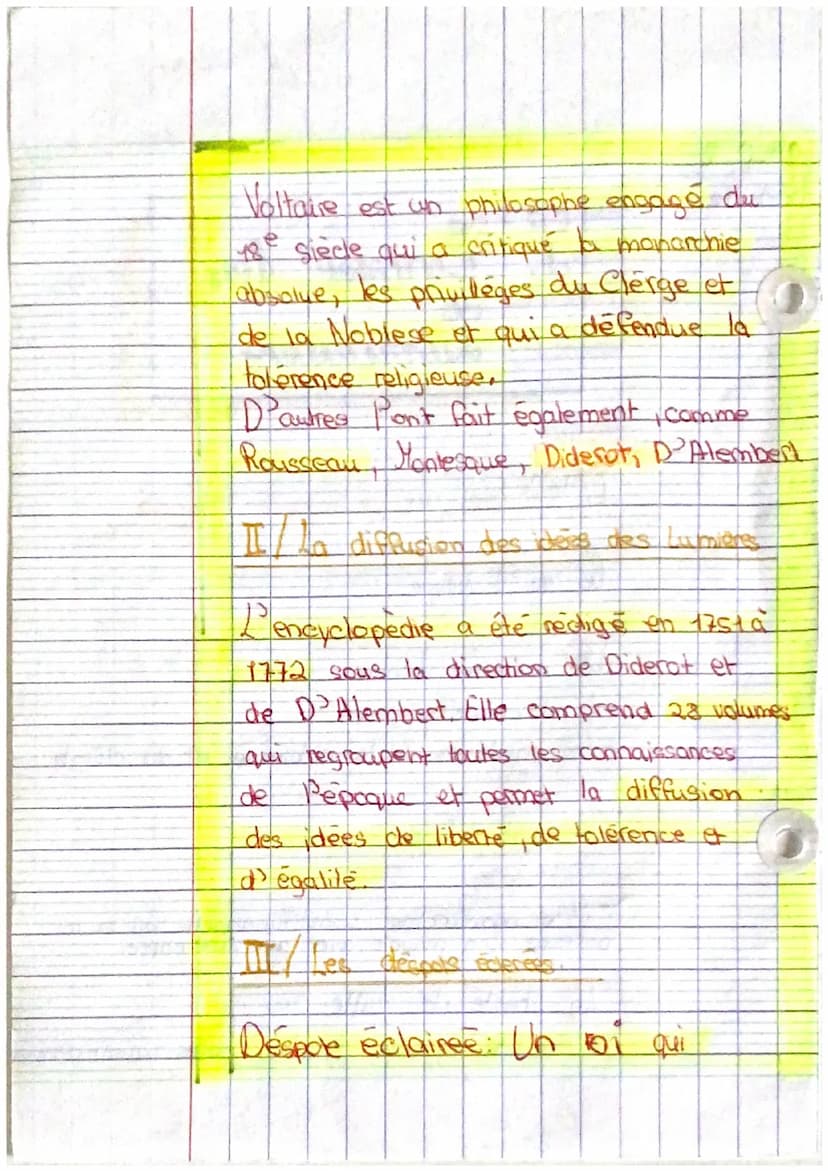 Voltaire est un philosophe engagé du
18e siècle qui a critiqué la monarchie
absolue, les privilléges du Clérge et
de la Noblese et qui a défendue la
tolérence religieuse.
D'autres l'ont fait également, comme
Rousseau, Montesque, Diderot, D'Alembert
II/ La diffusion des idées des Lumières
L'encyclopèdie a été rédigé en 1751 à
1772 sous la direction de Diderot et
de D'Alembert. Elle comprend 28 volumes
qui regroupent toutes les connaissances
de l'époque et permet la diffusion
des idées de liberté, de tolérence et
d'égalité.
III/ Les déspots éclerées.
Déspote éclaireé: Un roi qui